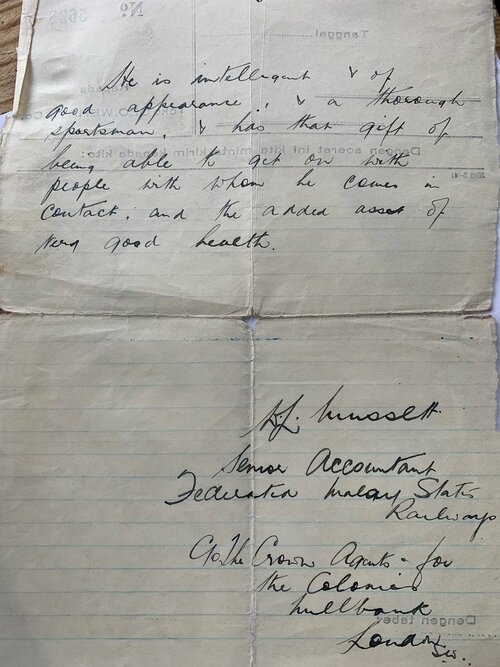 No 2629
Tanggal
He is intelligent & of
good appearance, & a thorough
sportsman, & has that gift of
Dengan soerat ini kita minta kirim kepada kita:
being able to get on with
people with whom he comes in
contact, and the added asset of
very good health.
Senior Accountant
Federated Malay States
Railways
C/o The Crown Agents for
the Colonies
Millbank
Dengen tabe
London
S.W.